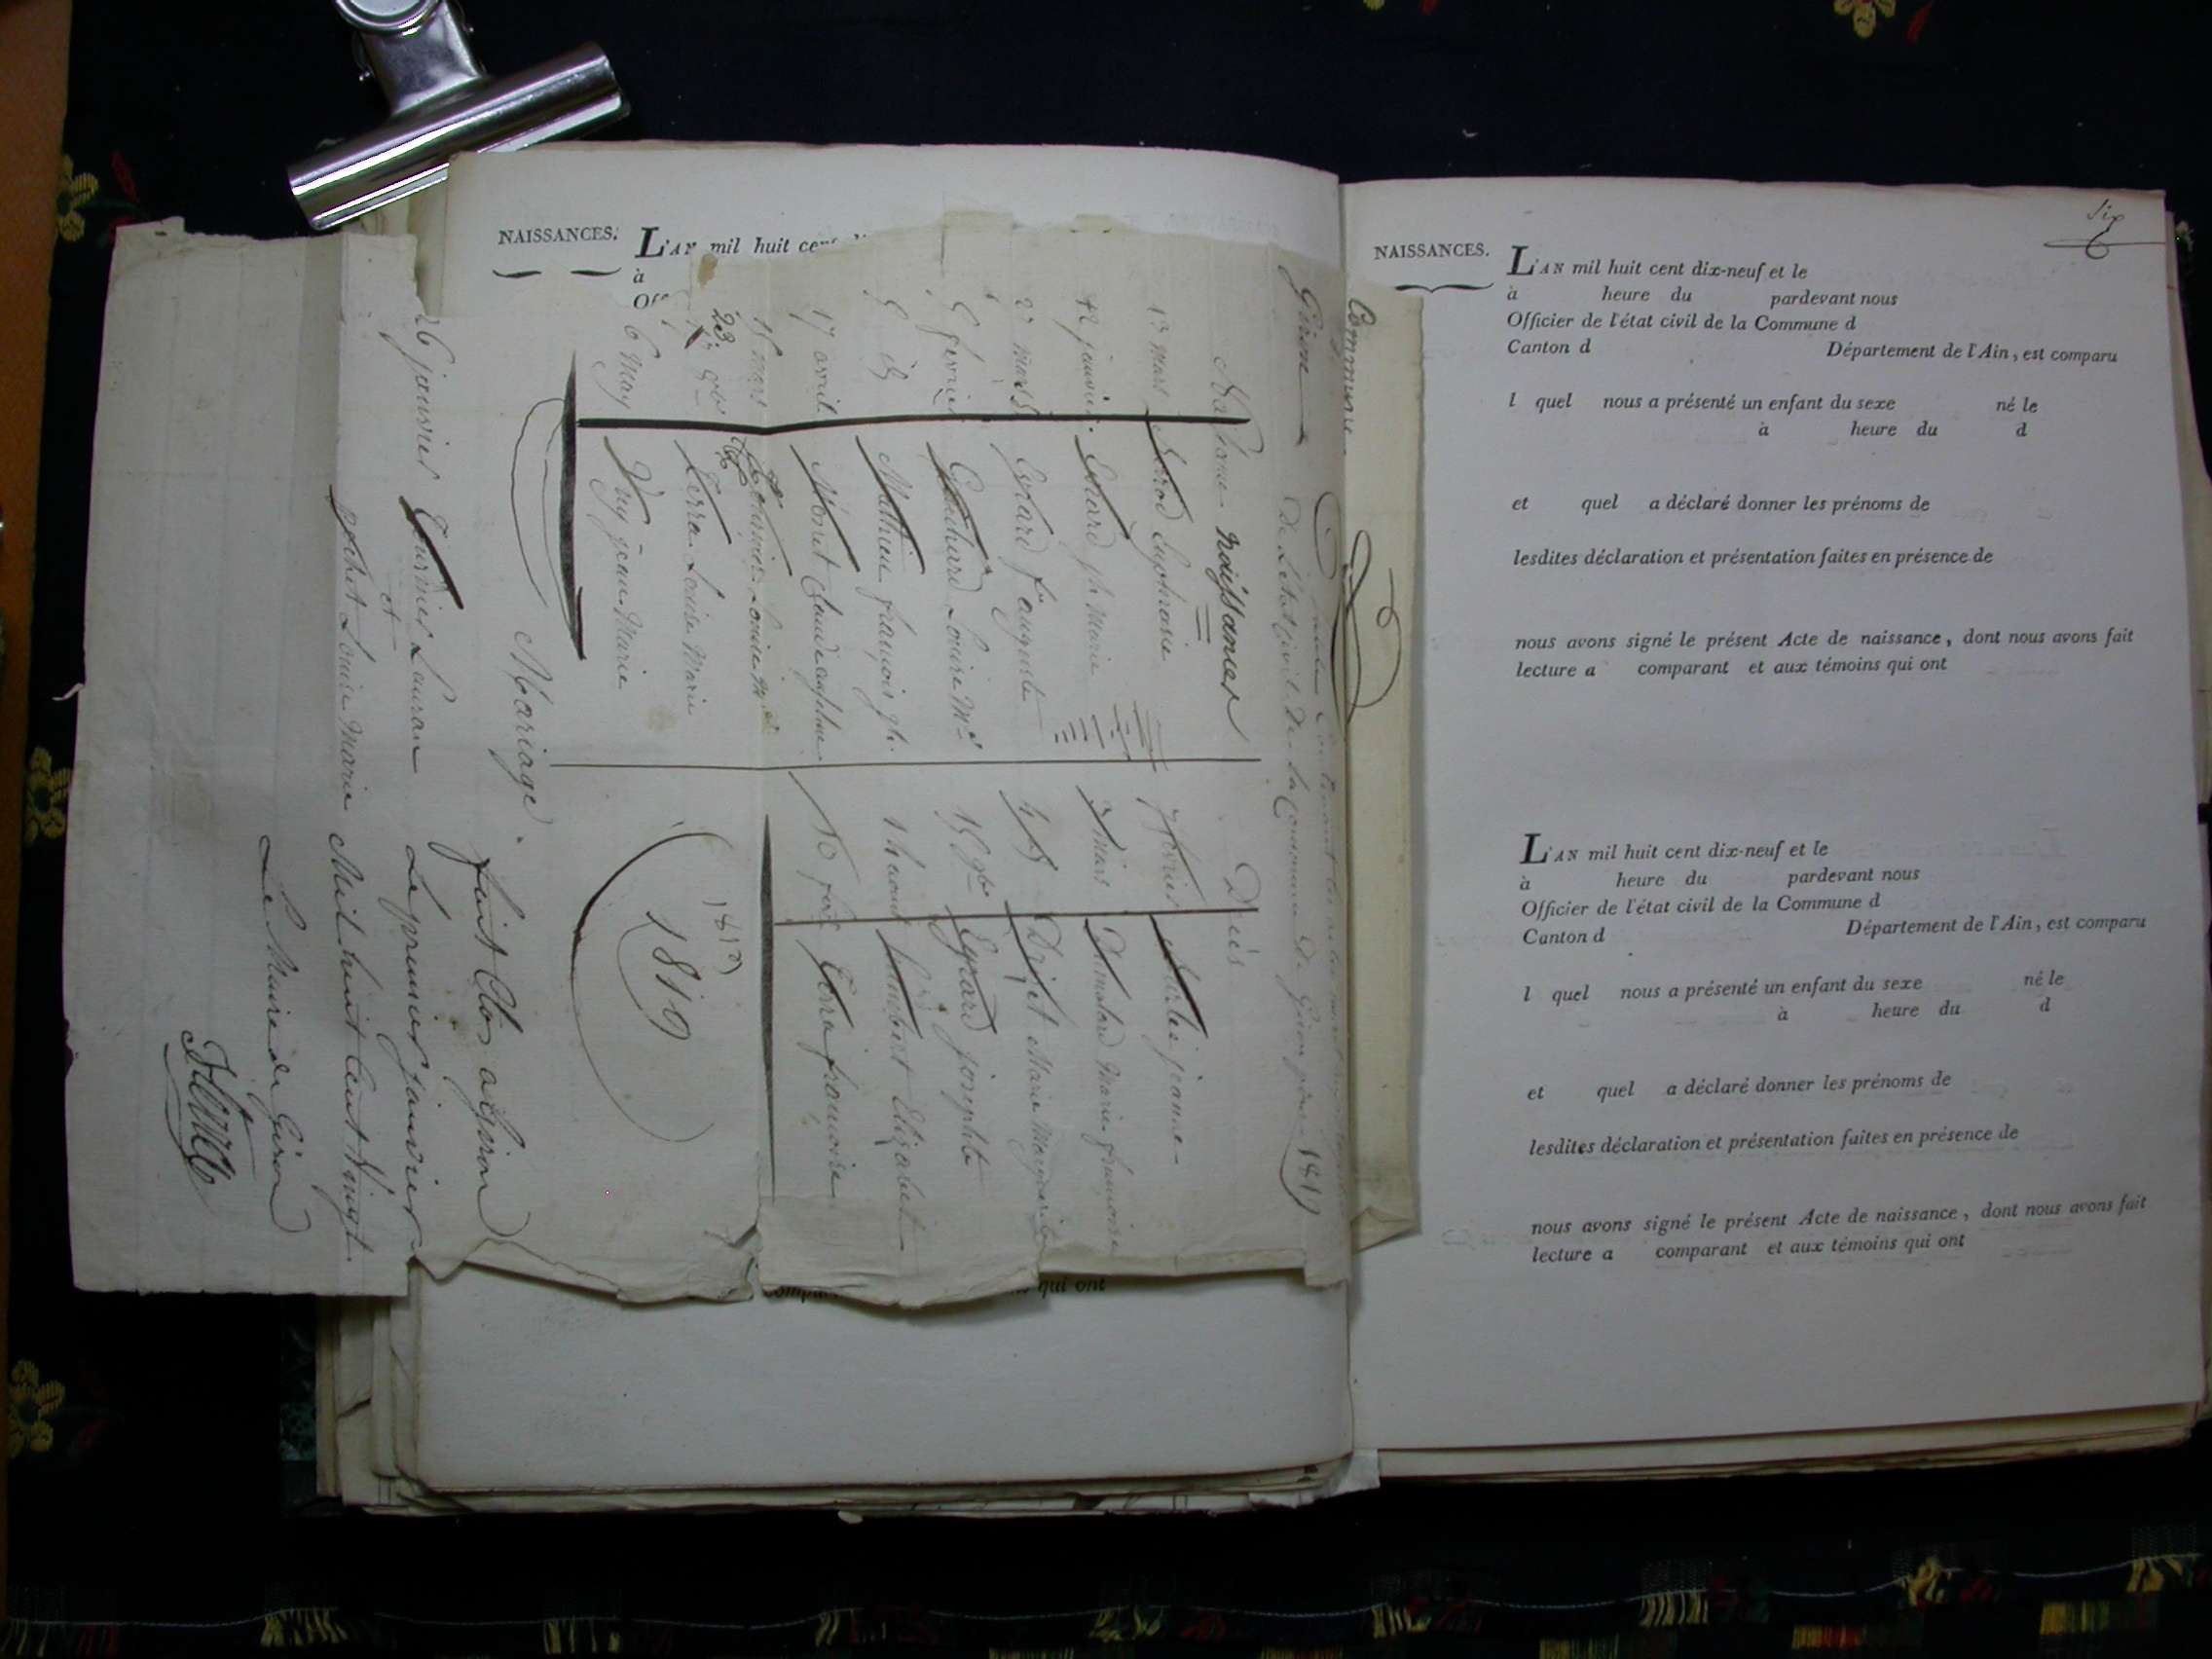 NAISSANCES.
L'AN mil huit cent
à
Commune
Giron
de L'état Civil de la Commune de Giron pour 1819
Naissances
13 mars Evrod Euphrasie
12 janvier Evrard jh Marie
2 mars Evrard fois auguste
5 fevrier Gauchard Louise Mie
Mathieu françois jh.
17 avril Moret Claude anselme
15 mars Louise
23 Terra Louise Marie
6 May Vuy jean Marie
Décès
7 fevrier jeanne
3 mars Marie françoise
Marie Marguerite
15 9bre Evrard josephte
14 aout humbert Elizabet
10 Terra francoise
1819
1819
Mariage
26 janvier Tournier Lauran
et
Louise Marie
fait Clos a giron
Le premier janvier
Mil huit Cent Vingt.
Le Maire de Giron
qui ont
Six
6
NAISSANCES.
L'AN mil huit cent dix-neuf et le
à heure du pardevant nous
Officier de l'état civil de la Commune d
Canton d Département de l'Ain, est comparu
l quel nous a présenté un enfant du sexe né le
à heure du d
et quel a déclaré donner les prénoms de
lesdites déclaration et présentation faites en présence de
nous avons signé le présent Acte de naissance, dont nous avons fait
lecture a comparant et aux témoins qui ont
L'AN mil huit cent dix-neuf et le
à heure du pardevant nous
Officier de l'état civil de la Commune d
Canton d Département de l'Ain, est comparu
l quel nous a présenté un enfant du sexe né le
à heure du d
et quel a déclaré donner les prénoms de
lesdites déclaration et présentation faites en présence de
nous avons signé le présent Acte de naissance, dont nous avons fait
lecture a comparant et aux témoins qui ont